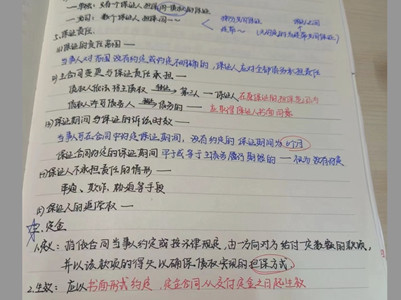 一般: 只有个保证人担保同一债权的保证
共同: 数个保证人担保同一
按份共同保证
连带
2.保证责任.
(1)保证的责任范围——
当事人对范围没有约定或约定不明确的,保证人应对全部债务承担责任
(2)主合同变更与保证责任承担——
债权人依法将主债权 第三人—保证人在原保证的担保范围内
债权人许可债务人 债务的— 应取得保证人书面同意
(3)保证期间与保证的诉讼时效——
当事人可在合同中约定保证期间,没有约定的保证期间为6个月
保证合同约定的保证期间早于或等于主债务履行期限的—视为没有约定
(4)保证人不承担责任的情形——
串通、欺诈、胁迫等手段
(5)保证人的追偿权——
定金
1.含义: 指依合同当事人约定或按法律规定,由一方向对方给付一定数额的款项,
并以该款项的得失以确保债权实现的担保方式.
2.生效: 应以书面形式约定,定金合同从交付定金之日起生效